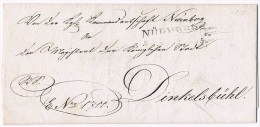 Von der Kgl. Commandantschaft Nürnberg
An
den Magistrat der Königlichen Stadt
NÜRNBERG
Dinkelsbühl.